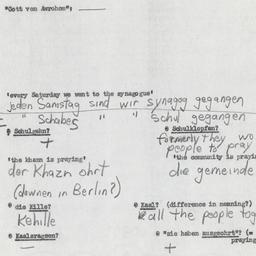 "Gott von Awrohom";
'every Saturday we went to the synagogue'
jeden Samstag sind wir synagog gegangen
" Schabes " " Schul gegangen
@ Schulzahn?
@ Schulklopfen?
+
formerly they wo
people to pray
'the khazn is praying'
'the community is prayi
der Khazn ohrt
die gemeinde
(dawnen in Berlin?)
@ die Kille?
@ Kaal? (difference in meaning?)
Kehille
Kall the people tog
@ Kaalsragsen?
@ "sie haben ausgeohrt"? (=
praying
—
+